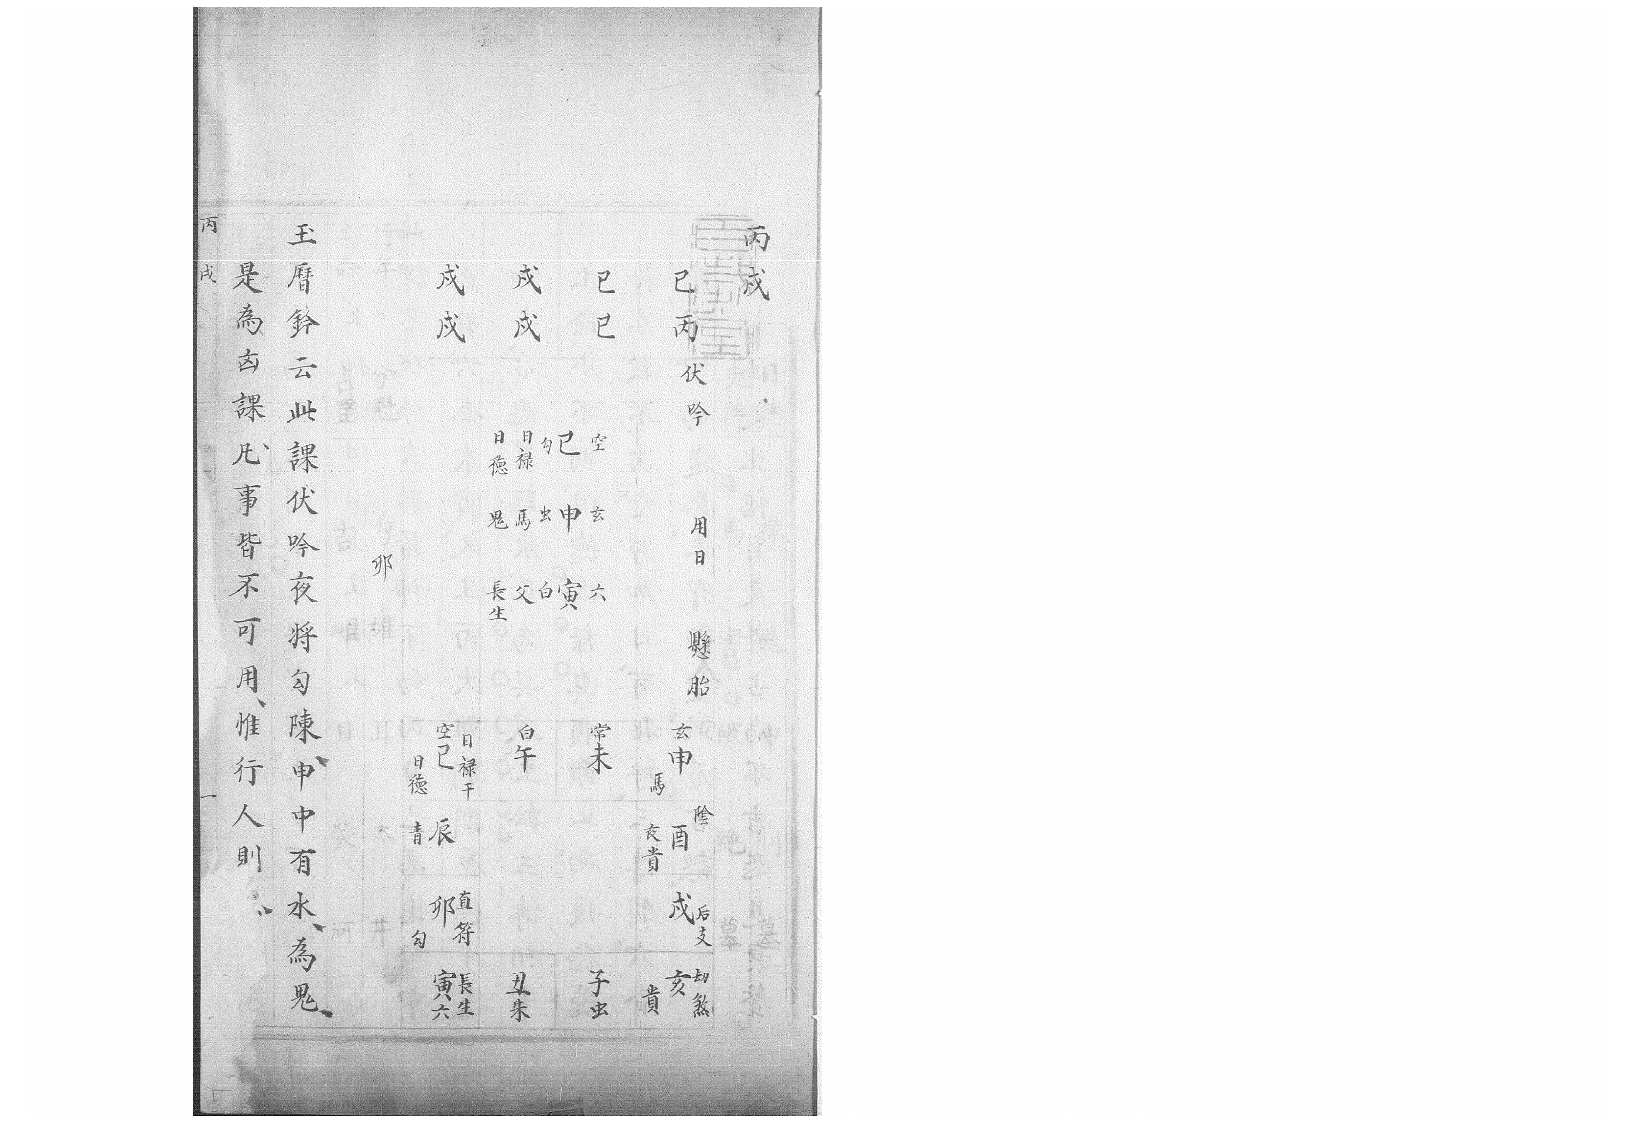 丙戌
巳丙 伏吟 用日 懸胎
巳巳
戌戌
戌戌
空 玄 六
巳 申 寅
勾 虫 白
日祿 馬 父
日德 鬼 長生
玄申馬
陰酉夜貴
戌后支
亥劫煞貴
常未
子虫
白午
丑朱
空巳日祿干日德
辰青
卯直符勾
寅長生六
卯
玉曆鈐云此課伏吟夜将勾陳、申中有水、為鬼、
是為凶課凡、事皆不可用、惟行人則
丙戌 一